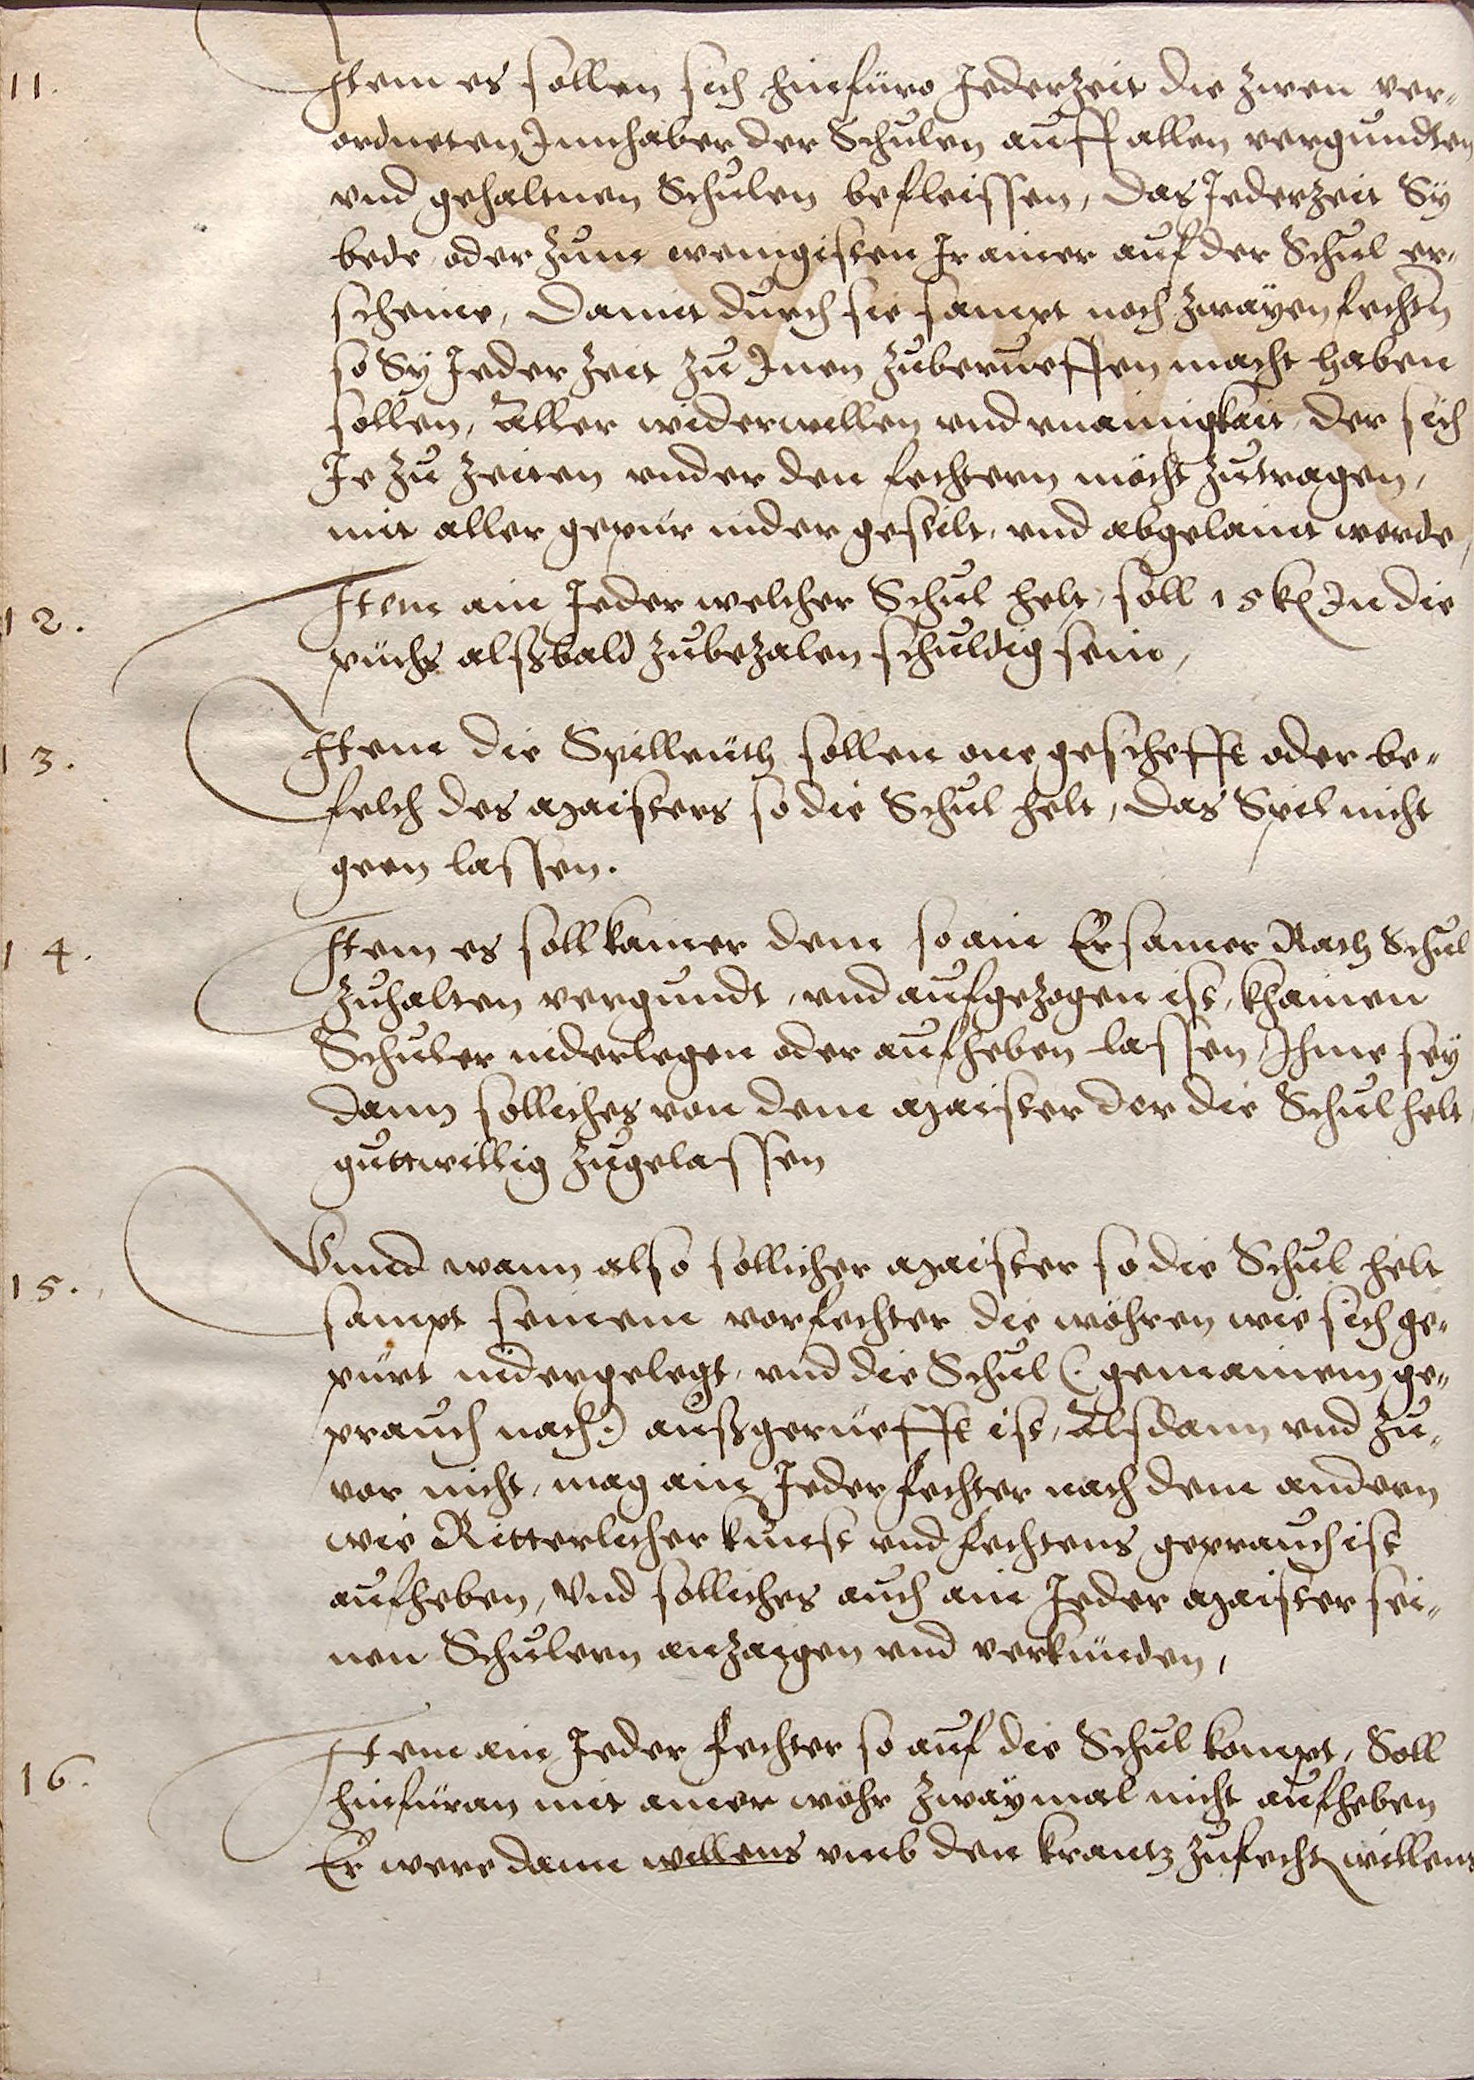 11. Item es sollen sich hinfüro Jederzeit die zwen ver-
ordneten Innhaber der Schulen auff allen vergundten
vnd gehaltnen Schulen befleissen, das Jederzeit Sÿ
bede oder zum wenigisten Ir ainer auf der Schul er-
scheine, Damit durch sie sampt noch zwayen fechtn
so Sÿ Jeder Zeit zu Inen zuberueffen macht haben
sollen, Aller widerwillen vnd vnainigkait, der sich
Je zu Zeiten vnder den fechtern möcht zutragen,
mit aller gepür nider gestilt, vnd abgelaint werde,
12. Item ain Jeder welcher Schul helt, soll 15 k In die
püchs alßbald zubezalen schuldig sein,
13. Item die Spilleüth sollen one geschefft oder be-
felch des maisters so die Schul helt, das Spil nicht
geen lassen.
14. Item es soll kainer dem so ain Ersamer Rath Schul
zuhalten vergundt, vnd aufgezogen ist, khainen
Schuler niderlegen oder aufheben lassen, Ihme seÿ
dann solliches von dem maister der die Schul helt
guttwillig zugelassen
15. Vnnd wann also sollicher maister so die Schul helt
sampt seinem vorfechter die wöhren wie sich ge-
pürt nidergelegt, vnd die Schul (: gemainem ge-
prauch nach:) außgerüefft ist, Alsdann vnd zu-
vor nicht, mag ain Jeder fechter nach dem andern
wie Ritterlicher kunst vnd fechtens geprauch ist
aufheben, Vnd solliches auch ain Jeder maister sei-
nen Schulern anzaigen vnd verkünden,
16. Item ain Jeder fechter so auf die Schul kompt, Soll
hinfüran mit ainer wöhr zwaÿmal nicht aufheben
Er were dann willens vmb den krantz zufecht willens